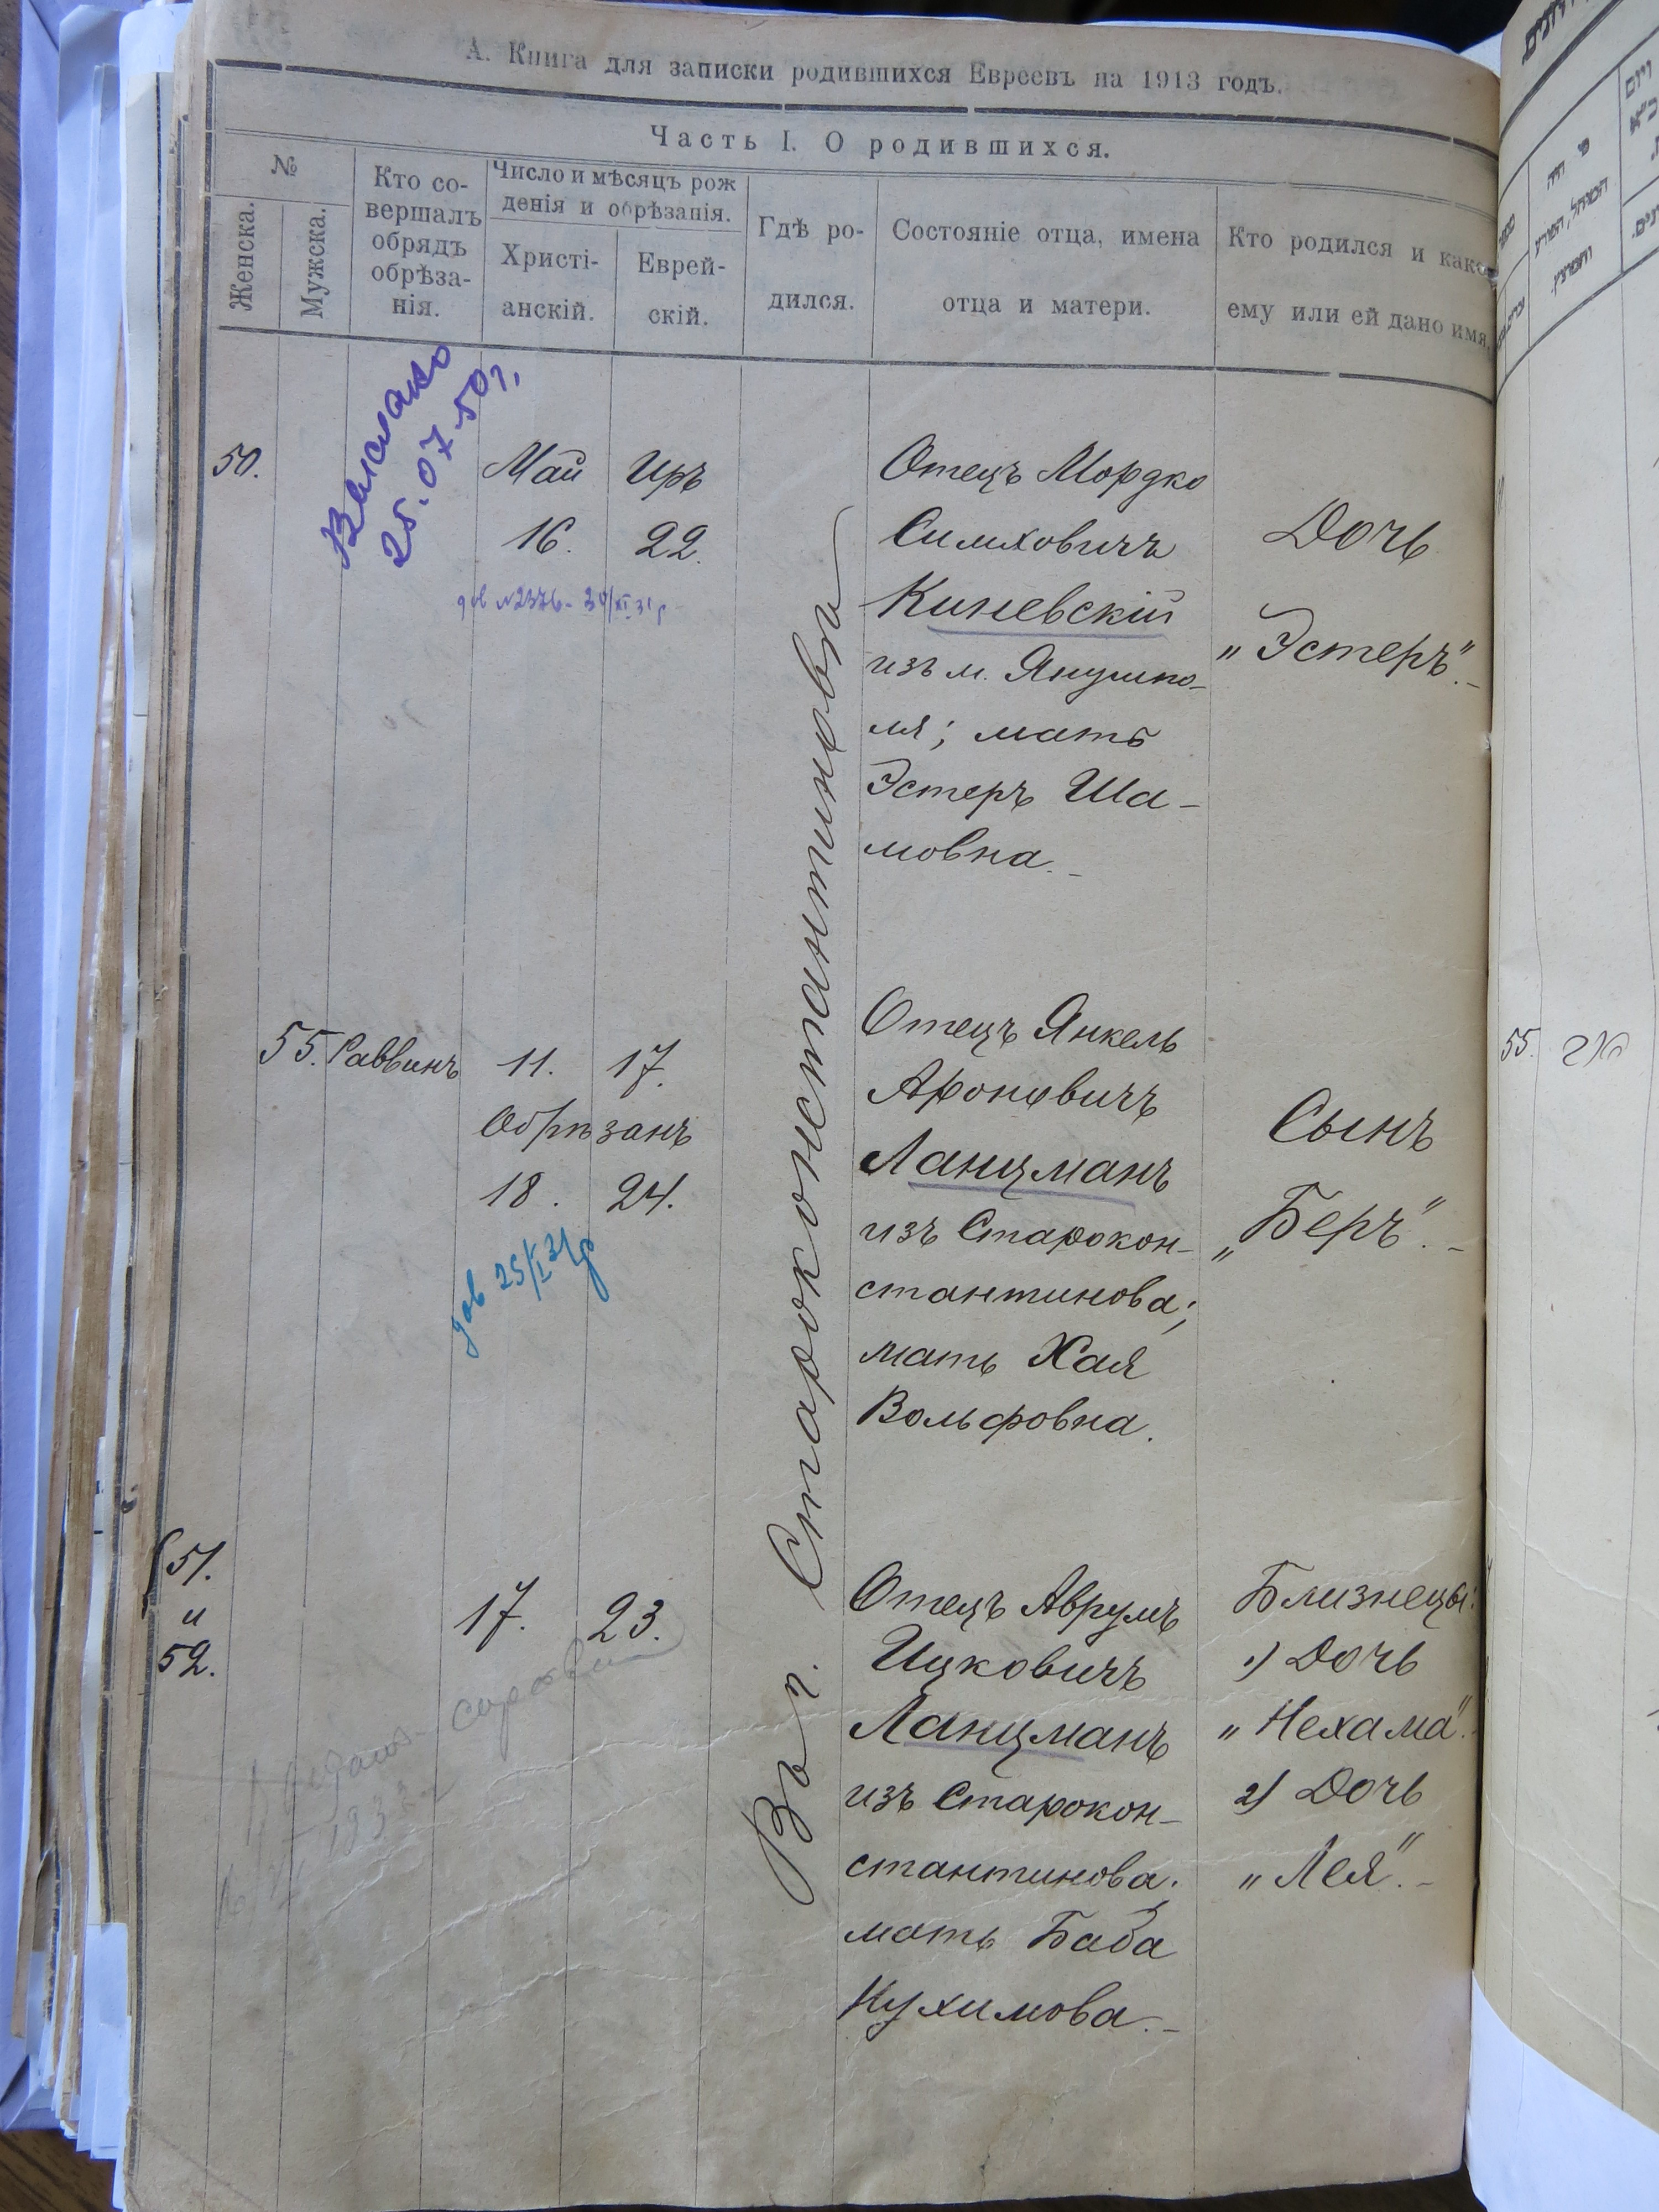 А. Книга для записки родившихся Евреевъ на 1913 годъ.
Часть I. О родившихся.
№
Женска.
Мужска.
Кто со-
вершалъ
обрядъ
обрѣза-
нія.
Число и мѣсяцъ рож
денія и обрѣзанія.
Христі-
анскій.
Еврей-
скій.
Гдѣ ро-
дился.
Состояніе отца, имена
отца и матери.
Кто родился и како
ему или ей дано имя.
Выслано
25.07-50г.
50.
Май Иръ
16. 22.
дов №2376- 30/XI 31г
Отецъ Мордко
Симховичъ
Киневскій
изъ м. Янушпо-
ля; мать
Эстеръ Ша-
мовна.-
Дочь
„Эстеръ".-
Въ г. Староконстантиновѣ
55. Раввинъ 11. 17.
Обрѣзанъ
18. 24.
дов 25/I 31г
Отецъ Янкель
Ароновичъ
Ланцманъ
изъ Старокон-
стантинова;
мать Хая
Вольфовна.
Сынъ
„Беръ".-
51.
и
52.
17. 23.
1933
Отецъ Аврумъ
Ицковичъ
Ланцманъ
изъ Старокон-
стантинова;
мать Баба
Нухимова.-
Близнецы:
1) Дочь
„Нехама".
2) Дочь
„Лея".-
55.